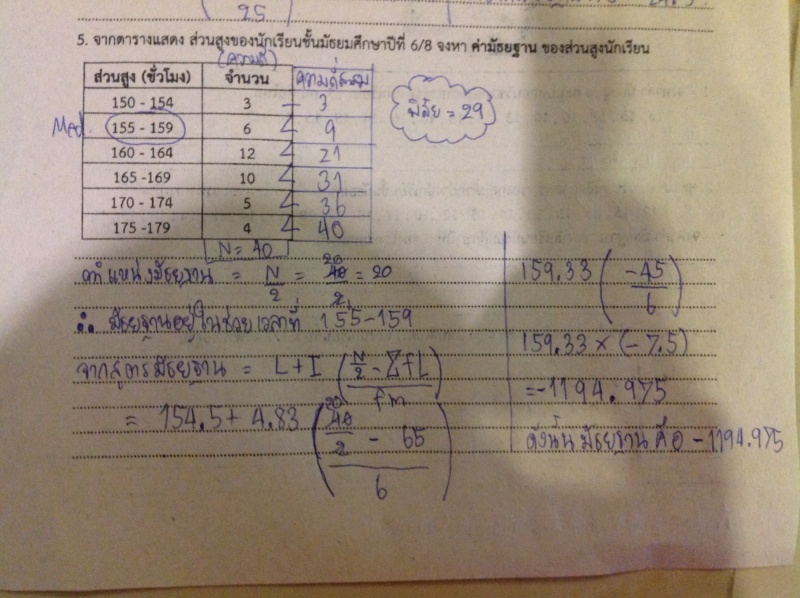 25
5. จากตารางแสดง ส่วนสูงของนักเรียนชั้นมัธยมศึกษาปีที่ 6/8 จงหา ค่ามัธยฐาน ของส่วนสูงนักเรียน
(ความถี่)
ส่วนสูง (ชั่วโมง) จำนวน ความถี่สะสม
150 - 154 3 3
Med. 155 - 159 6 9
160 - 164 12 21
165 -169 10 31
170 - 174 5 36
175 -179 4 40
N = 40
พิสัย = 29
ตำแหน่งมัธยฐาน = N/2 = 40/2 = 20
∴ มัธยฐานอยู่ในช่วงเวลาที่ 155-159
จากสูตรมัธยฐาน = L + I (N/2 - ΣfL / fm)
= 154.5 + 4.83 (40/2 - 65 / 6)
159.33 (-45/6)
159.33 × (-7.5)
= -1194.975
ดังนั้น มัธยฐาน คือ -1194.975